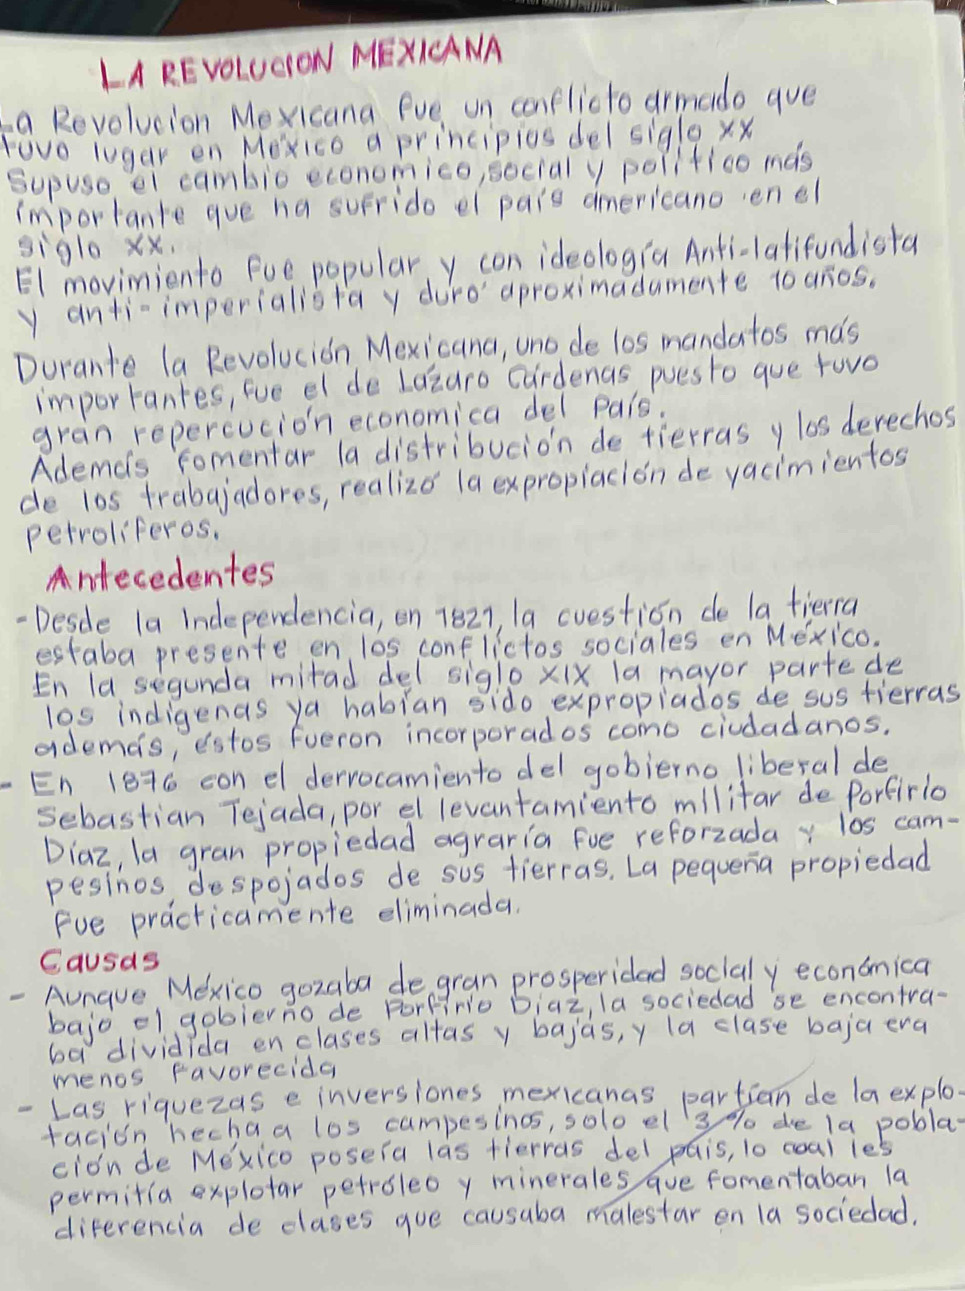 LA REVOLUCION MEXICANA
La Revolucion Mexicana fue un conflicto armado que
tuvo lugar en México a principios del siglo XX
Supuso el cambio economico, social y politico más
importante que ha sufrido el país americano en el
siglo XX.
El movimiento fue popular y con ideología Anti-latifundista
y anti-imperialista y duró aproximadamente 10 años.
Durante la Revolución Mexicana, uno de los mandatos más
importantes, fue el de Lázaro Cárdenas, puesto que tuvo
gran repercución economica del País.
Además fomentar la distribución de tierras y los derechos
de los trabajadores, realizó la expropiación de yacimientos
petrolíferos.
Antecedentes
- Desde la Independencia, en 1821, la cuestión de la tierra
estaba presente en los conflictos sociales en México.
En la segunda mitad del siglo XIX la mayor parte de
los indigenas ya habían sido expropiados de sus tierras
además, éstos fueron incorporados como ciudadanos.
- En 1876 con el derrocamiento del gobierno liberal de
Sebastian Tejada, por el levantamiento militar de Porfirio
Díaz, la gran propiedad agraría fue reforzada y los cam-
pesinos despojados de sus tierras. La pequeña propiedad
fue prácticamente eliminada.
Causas
- Aunque México gozaba de gran prosperidad social y económica
bajo el gobierno de Porfirio Díaz, la sociedad se encontra-
ba dividida en clases altas y bajas, y la clase baja era
menos favorecida
- Las riquezas e inversiones mexicanas partían de la explo-
tación hecha a los campesinos, solo el 3% de la pobla-
ción de México poseía las tierras del país, lo coal les
permitía explotar petróleo y minerales que fomentaban la
diferencia de clases que causaba malestar en la sociedad.